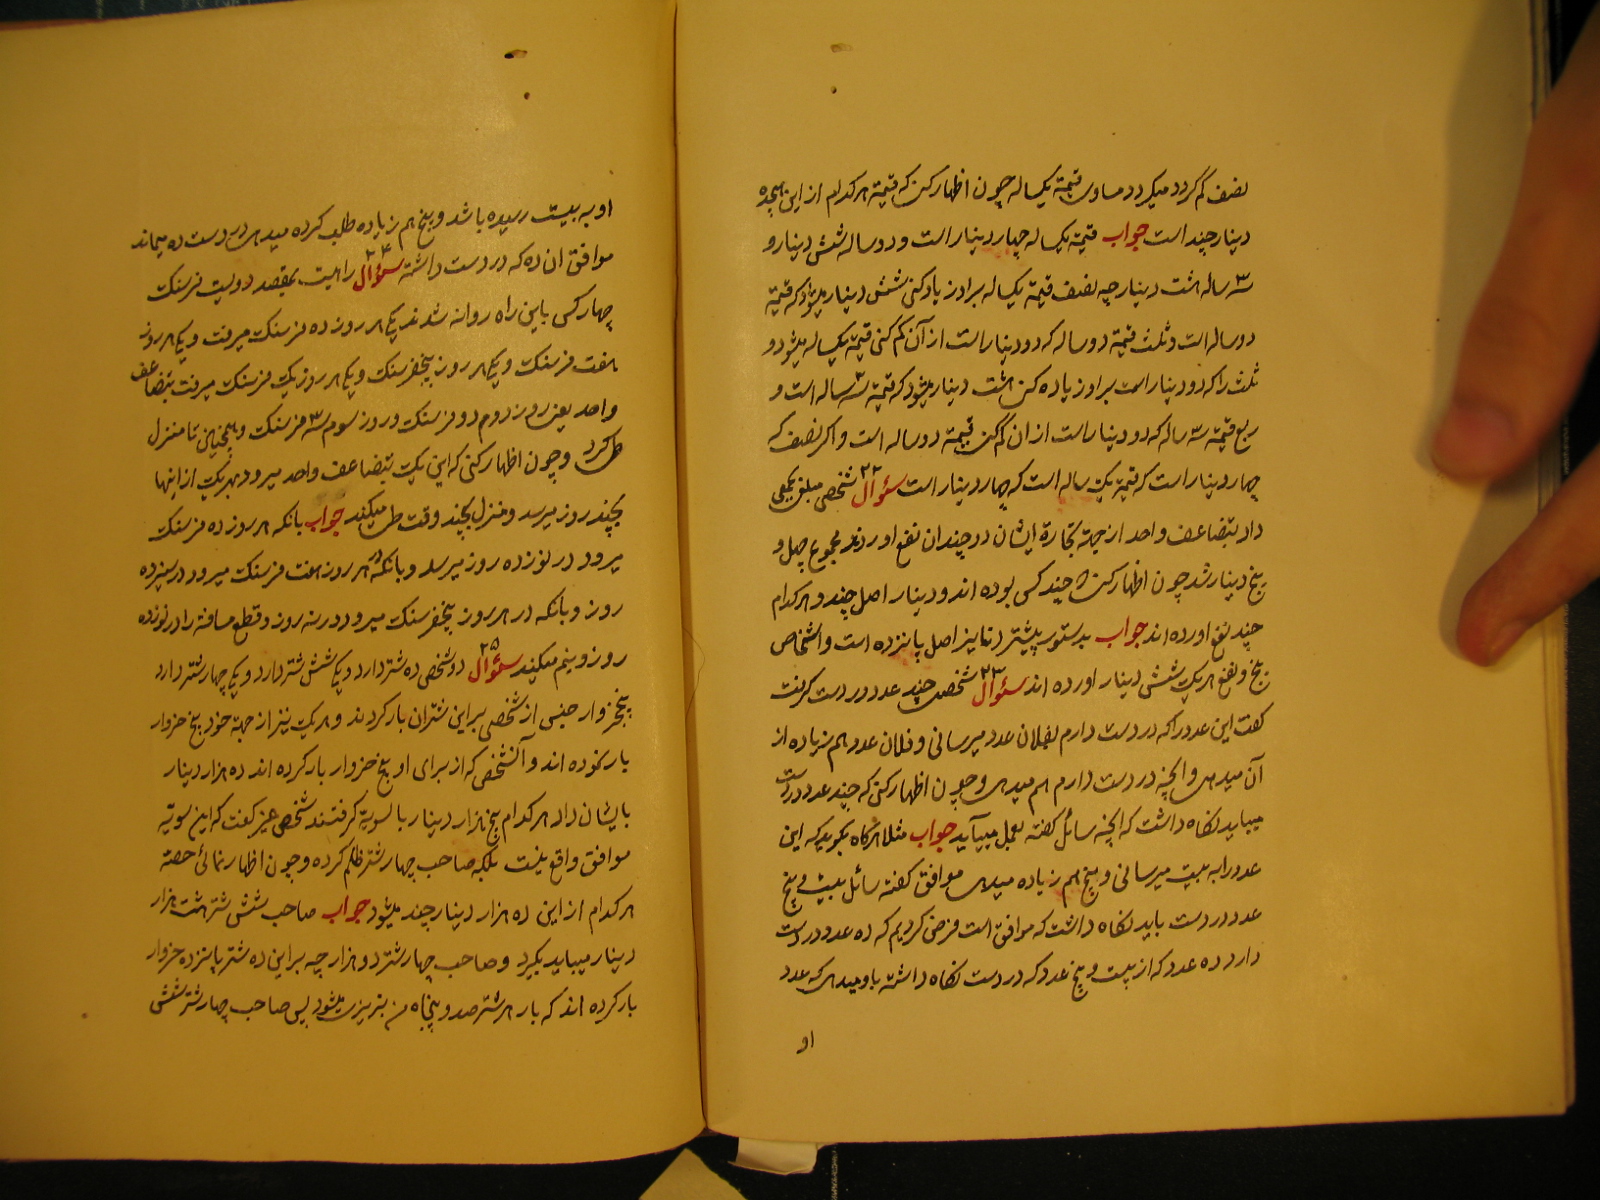 نصف کم کردد میکردد مساوی قیمة یکساله چون اظهار کن که قیمة هر کدام از این هیجده
دینار چند است جواب قیمة یکساله چهار دینار است و دو ساله شش دینار و
۳ ساله هشت دینار چه نصف قیمة یکساله بر او زیاد کنی شش دینار میشود که قیمة
دو ساله است و ثلث قیمة دو ساله که دو دینار است از آن کم کنی قیمة یکساله میشود و
ثلث را که دو دینار است بر او زیاده کن هشت دینار میشود که قیمة سه ۳ ساله است و
ربع قیمة سه ساله که دو دینار است از ان کم کن قیمة دو ساله است و اکر نصف که
چهار دینار است که قیمة یک ساله است که چهار دینار است سؤال ۲۲ شخصی مبلغی بجمعی
داد بتضاعف واحد از جهة تجارة ایشان دو چندان نفع اوردند مجموع چهل و
پنج دینار شد چون اظهار کن که چند کس بوده اند و دینار اصل چند و هر کدام
چند نفع اورده اند جواب بدستور پیشتر دنانیر اصل پانزده است و اشخاص
پنج و نفع هر یک شش دینار اورده اند سؤال ۲۳ شخصی چند عدد در دست کرفت
کفت این عدد را که در دست دارم بفلان عدد میرسانی و فلان عدد هم زیاده از
آن میدهی و انچه در دست دارم هم میدهی و چون اظهار کنی که چند عدد در دست
میباید نکاه داشت که انچه سائل کفته بعمل میآید جواب مثلا هر کاه بکوید که این
عدد را به بیست میرسانی و پنج هم زیاده میدهی موافق کفته سائل بیست و پنج
عدد در دست باید نکاه داشت که موافق است فرض کردیم که ده عدد در دست
دارد ده عدد که از بیست و پنج عدد که در دست نکاه داشته باو میدهی که عدد
او
او به بیست رسیده باشد و پنج هم زیاده طلب کرده میدهی در دست ده میماند
موافق ان ده که در دست داشته سؤال ۲۴ راهیست بمقصد دویست فرسنک
چهار کس باین راه روانه شدند یکی هر روز ده فرسنک میرفت و یکی هر روز
هفت فرسنک و یکی هر روز پنجفرسنک و یکی هر روز یک فرسنک میرفت بتضاعف
واحد یعنی روز دوم دو فرسنک و روز سوم سه ۳ فرسنک و همچنان تا منزل
طی کرد و چون اظهار کنی که این یک بتضاعف واحد میرود بهر یک از اینها
بچند روز میرسد و منزل بچند وقت طی میکند جواب بانکه هر روز ده فرسنک
میرود در نوزده روز میرسد و بانکه در هر روز هفت فرسنک میرود در سیزده
روز و بانکه در هر روز پنجفرسنک میرود در نه روز و قطع مسافة را در نوزده
روز و نیم میکند سؤال ۲۵ دو شخصی ده شتر دارد و یکی شش شتر دارد و یکی چهار شتر دارد
پنجخروار جنس از شخصی بر این شتران بار کردند و هر یک نیز از جهة خود پنج خروار
بار نموده اند و آنشخص که از برای او پنج خروار بار کرده اند ده هزار دینار
بایشان داد هر کدام پنج هزار دینار بالسویه کرفتند شخص ممیز کفت که این سویه
موافق واقع نیست بلکه صاحب چهار شتر ظلم کرده و چون اظهار نمائی حصه
هر کدام از این ده هزار دینار چند میشود جواب صاحب شش شتر هشت هزار
دینار میباید بکیرد و صاحب چهار شتر دو هزار چه بر این ده شتر پانزده خروار
بار کرده اند که بار هر شتر صد و پنجاه من تبریزی میشود پس صاحب چهار شتر شش